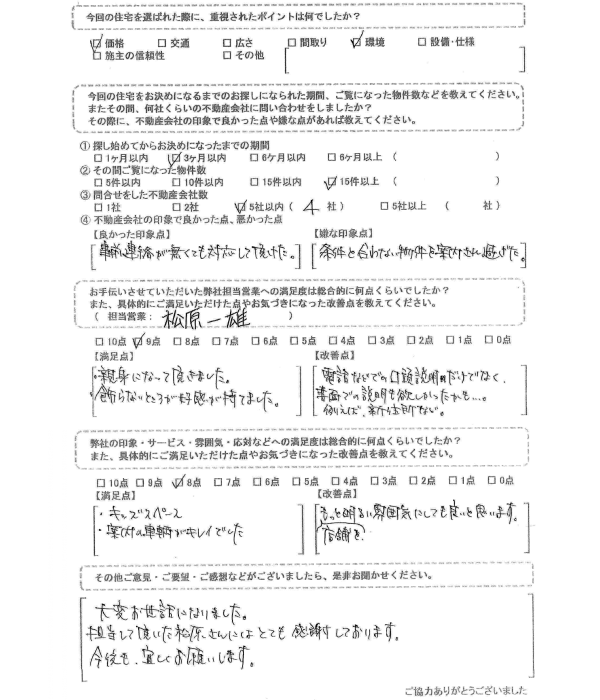 今回の住宅を選ばれた際に、重視されたポイントは何でしたか？
☑ 価格 □ 交通 □ 広さ □ 間取り ☑ 環境 □ 設備・仕様
□ 施主の信頼性 □ その他
今回の住宅をお決めになるまでのお探しになられた期間、ご覧になった物件数などを教えてください。
またその間、何社くらいの不動産会社に問い合わせをしましたか？
その際に、不動産会社の印象で良かった点や嫌な点があれば教えてください。
① 探し始めてからお決めになったまでの期間
□ 1ヶ月以内 ☑ 3ヶ月以内 □ 6ケ月以内 □ 6ケ月以上 （ ）
② その間ご覧になった物件数
□ 5件以内 □ 10件以内 □ 15件以内 ☑ 15件以上 （ ）
③ 問合せをした不動産会社数
□ 1社 □ 2社 ☑ 5社以内（ 4 社） □ 5社以上 （ 社）
④ 不動産会社の印象で良かった点、悪かった点
【良かった印象点】 【嫌な印象点】
事前連絡が無くても対応して頂けた。 条件と合わない物件を案内され過ぎた。
お手伝いさせていただいた弊社担当営業への満足度は総合的に何点くらいでしたか？
また、具体的にご満足いただけた点やお気づきになった改善点を教えてください。
（ 担当営業： 松原一雄 ）
□ 10点 ☑ 9点 □ 8点 □ 7点 □ 6点 □ 5点 □ 4点 □ 3点 □ 2点 □ 1点 □ 0点
【満足点】 【改善点】
・親身になって頂きました。 電話などでの口頭説明だけでなく、
・飾らないところが好感が持てました。 書面での説明も欲しかったかも…。
例えば、新住所など。
弊社の印象・サービス・雰囲気・応対などへの満足度は総合的に何点くらいでしたか？
また、具体的にご満足いただけた点やお気づきになった改善点を教えてください。
□ 10点 □ 9点 ☑ 8点 □ 7点 □ 6点 □ 5点 □ 4点 □ 3点 □ 2点 □ 1点 □ 0点
【満足点】 【改善点】
・キッズスペース もっと明るい雰囲気にしても良いと思います。
・案内の車輌がキレイでした 店舗を
その他ご意見・ご要望・ご感想などがございましたら、是非お聞かせください。
大変お世話になりました。
担当して頂いた松原さんにはとても感謝しております。
今後も、宜しくお願いします。
ご協力ありがとうございました